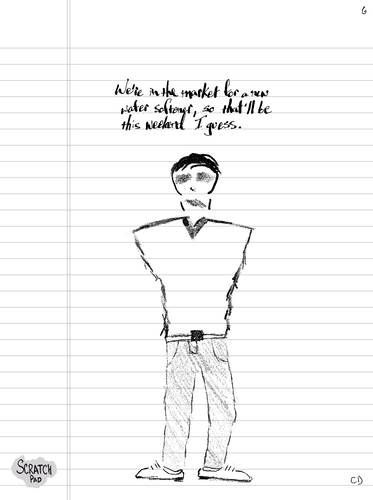 6
We're in the market for a new
water softener, so that'll be
this weekend I guess.
SCRATCH
PAD
CD